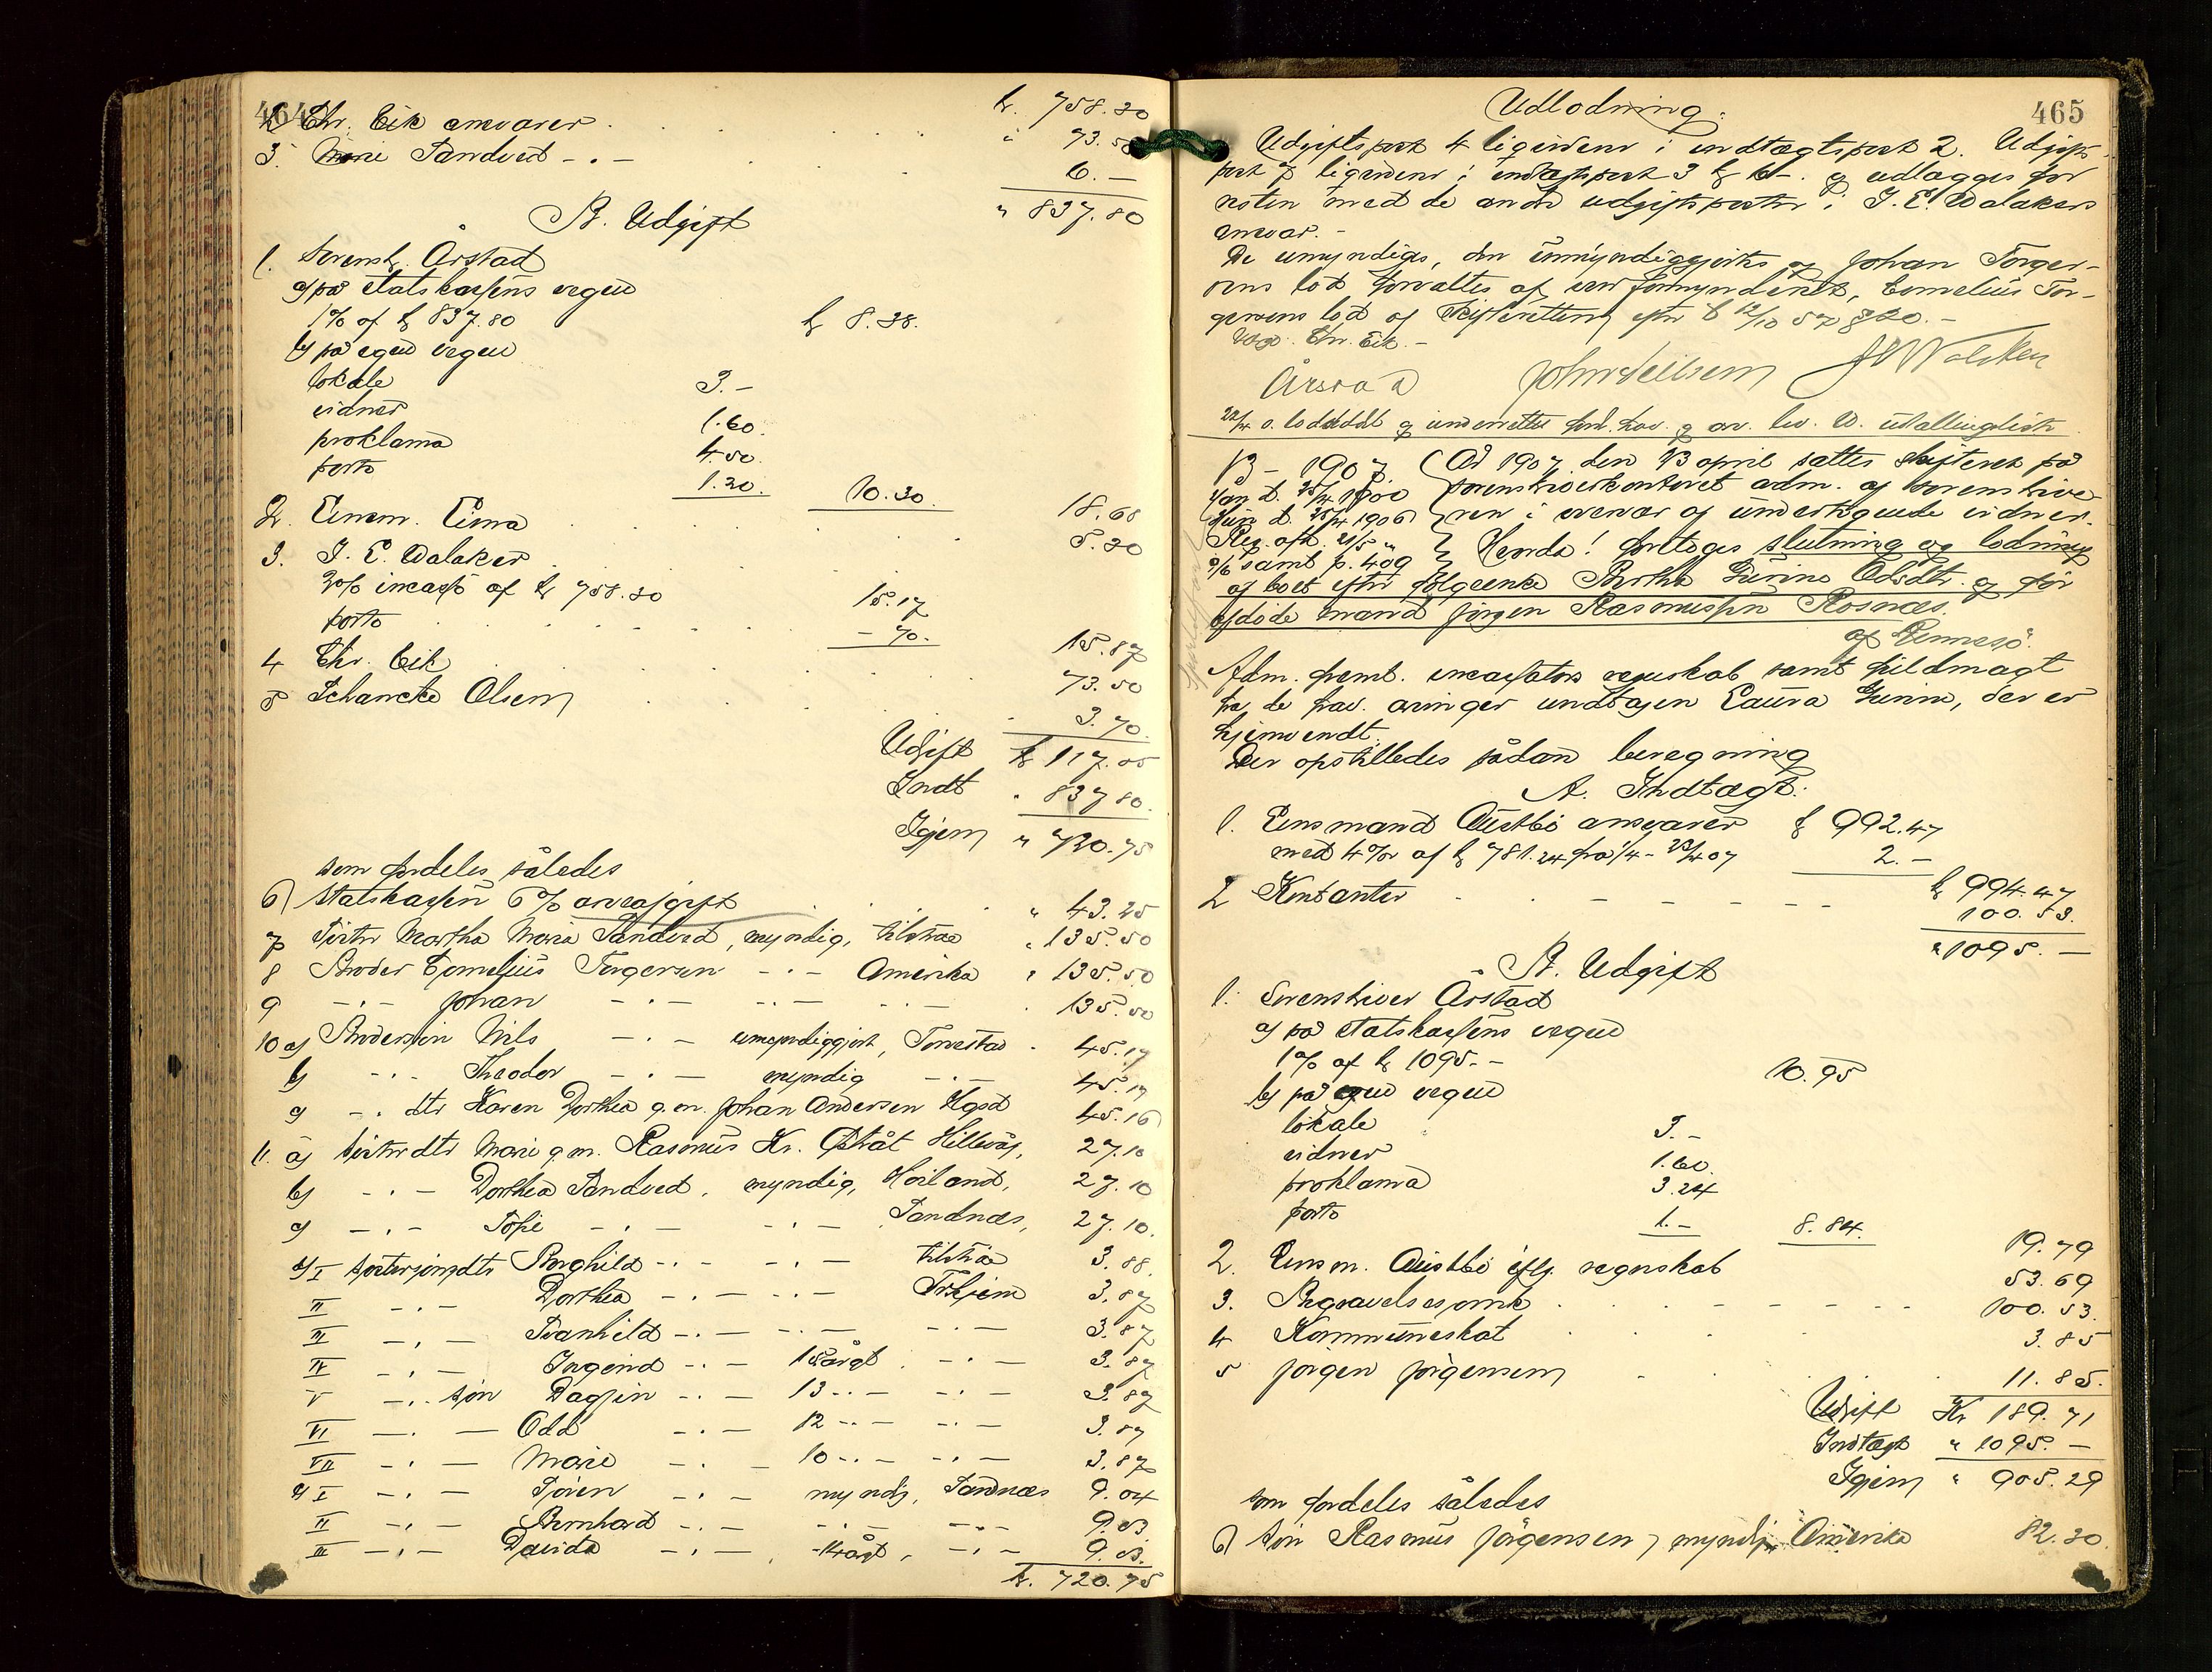 464
kr. 758.30
2) Chr. Eik ansvarer . . . " 73.50
3. Marie Sandved - . - . . 6. —
" 837.80
B. Udgift
1. Sorenskr. Årstad
a) på statskassens vegne
1% af kr 837.80 kr 8.38.
b) på egne vegne
lokale 3. -
vidner 1.60.
proklama 4.50.
porto 1.20. 10.30. 18.68
2. Lensm. Lima . . . 5.30
3. J. E. Walaker
2% incasso af kr 758.30 15.17
porto . . . - 70. 15.87
4 Chr. Eik . . . 73.50
5 Schancke Olsen . . . 3.70.
Udgift kr 117.05
Indt. " 837.80.
Igjen " 720.75
som fordeles således
6) Statskassen 6% arveafgift . . . " 43.25
7 Søster Martha Maria Sandved, myndig, tilstede " 135.50
8 Broder Cornelius Torgersen - . - Amerika " 135.50
9 - . - Johan - . - - . - - . - 135.50
10 a) Brodersøn Nils - . - umyndiggjort, Torvestad - 45.17
b) - . - Theodor - . - myndig - . - 45.17
c) - . dtr Karen Dorthea g.m. Johan Andersen Hgsd 45.16
11. a) søsterdtr Marie g.m. Rasmus Kr. Østråt Hillevåg, 27.10
b) - . - Dorthea Sandved, myndig, Høiland, 27.10
c) - . - Sofie - . - - . - Sandnæs, 27.10.
d) I søstersønsdtr Borghild - . - - . - tilstede 3.88.
II - . - Dorthea - . - - . - Trhjem 3.87
III - . - Svanhild - . - - . - - . - 3.87
IV - . - Ingerid - . - 15 årgl. - . - 3.87
V - . . søn Dagfin - . - 13 - . - - . - 3.87
VI - . - Odd - . - 12 - . - - . - 3.87
VII - . - Marie - . - 10 - . - - . - 3.87
e) I - . - Søren - . - myndig, Sandnæs 9.04
II - . - Bernhard - . - - . - - . - 9.03
III - . - Davida - . - , 14 årgl, - . - 9.03.
kr. 720.75
465
Udlodning.
Udgiftspost 4 ligeoverfor indtægtspost 2. Udgifts-
post 7 ligeoverfor indtægtspost 3 kr 6.-. og udlægges for
resten med de andre udgiftsposter i J. E. Walakers
ansvar. -
De umyndiges, den umyndiggjortes og Johan Torger-
sens lod forvaltes af overformynderiet, Cornelius Tor-
gersens lod af Skifteretten
Chr. Eik. -
Årstad John Nilsen JEWalaker
13 - 1907. År 1907 den 13 april sattes skifteret på
sorenskriverkontoret adm. af sorenskrive-
ren i overvær af undertegnede vidner.
Hervda! foretoges slutning og lodning
af boet efter følgeenke Bertha Gurine Olsdtr. og før
afdøde mand Jørgen Rasmussen Rosnæs.
af Rennesø.
Adm. fremt. incassators regnskab samt fuldmagt
fra de frav. arvinger undtagen Laura Gurine, der er
hjemvendt.
Der opstilledes sådan beregning
A. Indtægt.
1. Lensmand Austbø ansvarer kr 992.47
med 4% af kr 781.24 fra 1/4 - 23/4 07 2. -
kr 994.47
2 Kontanter - - - - - 100.53.
" 1095. —
B. Udgift
1. Sorenskriver Årstad
a) på statskassens vegne
1% af kr 1095. - 10.95
b) på egne vegne
lokale 3. -
vidner 1.60.
proklama 3.24
porto 1. - 8.84. 19.79
2. Lensm. Austbø iflg. regnskab 53.69
3. Begravelsesomk. . - - - - 100.53.
4 Kommuneskat . . . 3.85
5 Jørgen Jørgensen . . . 11.85.
Udgift Kr 189.71
Indtægt " 1095. —
Igjen " 905.29
som fordeles således
6) søn Rasmus Jørgensen, myndig, Amerika 82.30.